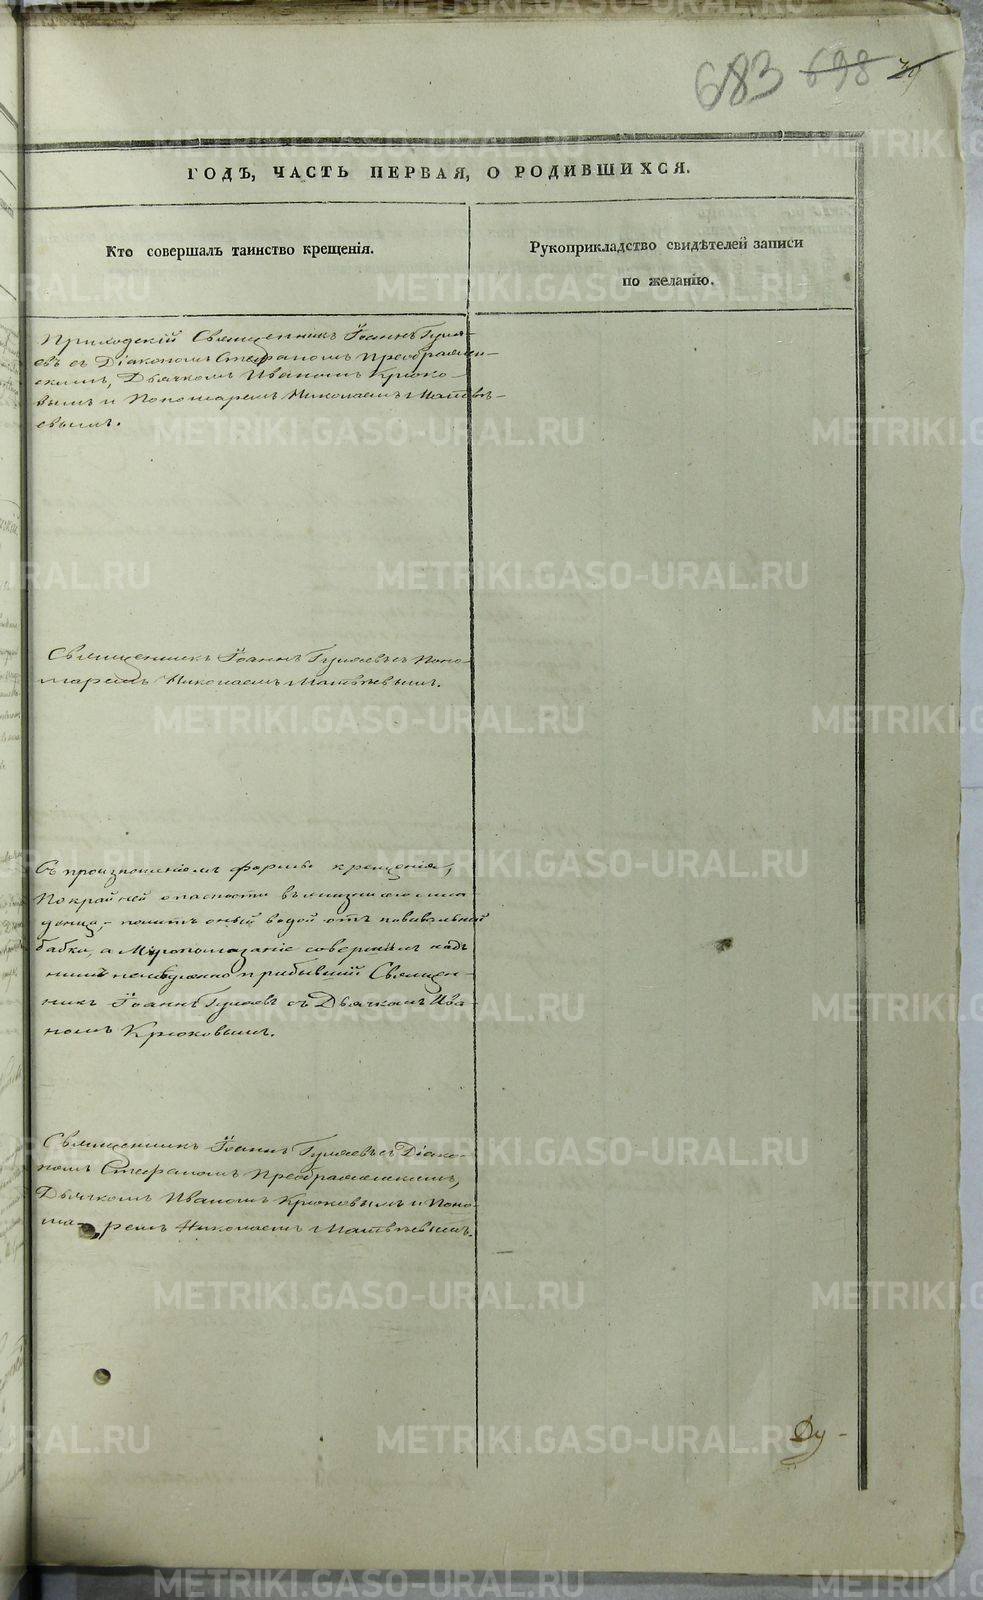 683 698 39
ГОДЪ, ЧАСТЬ ПЕРВАЯ, О РОДИВШИХСЯ.
Кто совершалъ таинство крещенія.
Рукоприкладство свидѣтелей записи
по желанію.
Приходскій Священникъ Іоаннъ Гуля-
евъ съ Діакономъ Стефаномъ Преображен-
скимъ, Дьячкомъ Иваномъ Крюко-
вымъ и Пономаремъ Николаемъ Матвѣ-
евымъ.
Священникъ Іоаннъ Гуляевъ съ Поно-
маремъ Николаемъ Матвѣевымъ.
Съ произношеніемъ формы крещенія,
по крайней опасности въ жизни мла
денца, оный водой отъ повивальной
бабки, а Мѵропомазаніе совершилъ надъ
нимъ прибывшій Священ-
никъ Іоаннъ Гуляевъ съ Дьячкомъ Ива-
номъ Крюковымъ.
Священникъ Іоаннъ Гуляевъ съ Діако-
номъ Стефаномъ Преображенскимъ,
Дьячкомъ Иваномъ Крюковымъ и Поно-
маремъ Николаемъ Матвѣевымъ.
Ду-
METRIKI.GASO-URAL.RU